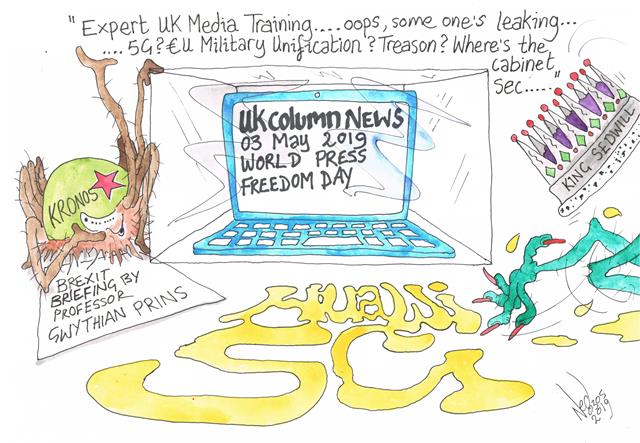 "Expert UK Media Training.... oops, some one's leaking...
.... 5G? €U Military Unification? Treason? Where's the
cabinet
sec....."
UKcolumn News
03 May 2019
World Press
Freedom Day
KING SEDWILL
KRONOS
BREXIT
BRIEFING BY
PROFESSOR
GWYTHIAN PRINS
Huawei
5G
2019